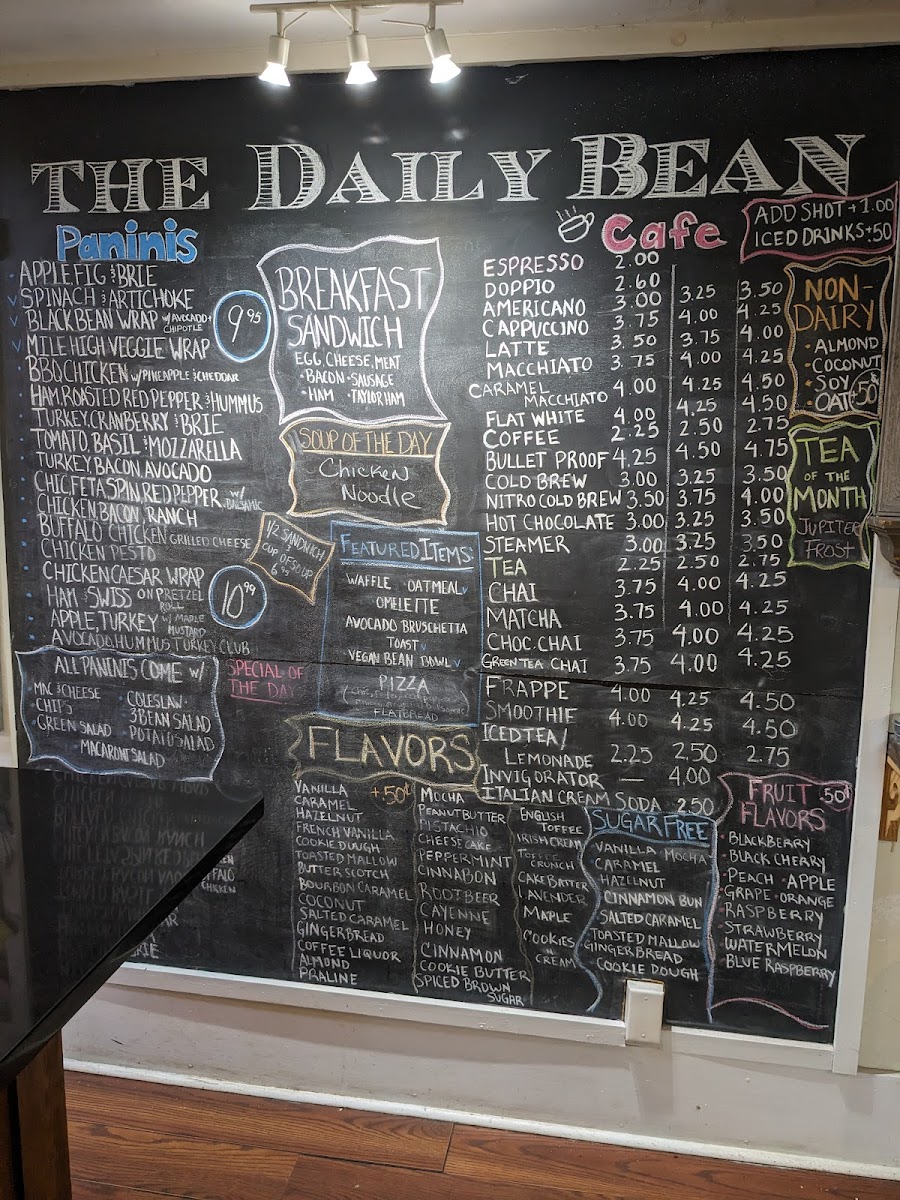 THE DAILY BEAN
Paninis
APPLE, FIG & BRIE
SPINACH & ARTICHOKE
BLACK BEAN WRAP W/ AVOCADO + CHIPOTLE
MILE HIGH VEGGIE WRAP
9.95
BBQ CHICKEN W/ PINEAPPLE & CHEDDAR
HAM, ROASTED RED PEPPER & HUMMUS
TURKEY, CRANBERRY & BRIE
TOMATO, BASIL & MOZZARELLA
TURKEY, BACON, AVOCADO
CHIC, FETA, SPIN, RED PEPPER W/ BALSAMIC
CHICKEN, BACON, RANCH
BUFFALO CHICKEN GRILLED CHEESE
CHICKEN PESTO
CHICKEN CAESAR WRAP
HAM & SWISS ON PRETZEL ROLL
10.99
APPLE, TURKEY W/ MAPLE MUSTARD
AVOCADO, HUMMUS TURKEY CLUB
ALL PANINIS COME W/
• MAC & CHEESE
• CHIPS
• GREEN SALAD
• COLESLAW
• 3 BEAN SALAD
• POTATO SALAD
MACARONI SALAD
BREAKFAST
SANDWICH
EGG, CHEESE, MEAT
• BACON • SAUSAGE
• HAM • TAYLOR HAM
SOUP OF THE DAY
Chicken
Noodle
1/2 SANDWICH
&
CUP OF SOUP
6.95
FEATURED ITEMS:
WAFFLE • OATMEAL
OMELETTE
AVOCADO BRUSCHETTA
TOAST
VEGAN BEAN BOWL
PIZZA
FLATBREAD
SPECIAL OF
THE DAY
Cafe
ADD SHOT + 1.00
ICED DRINKS + .50
ESPRESSO 2.00
DOPPIO 2.60
AMERICANO 3.00 3.25 3.50
CAPPUCCINO 3.75 4.00 4.25
LATTE 3.50 3.75 4.00
MACCHIATO 3.75 4.00 4.25
CARAMEL MACCHIATO 4.00 4.25 4.50
FLAT WHITE 4.00 4.25 4.50
COFFEE 2.25 2.50 2.75
BULLET PROOF 4.25 4.50 4.75
COLD BREW 3.00 3.25 3.50
NITRO COLD BREW 3.50 3.75 4.00
HOT CHOCOLATE 3.00 3.25 3.50
STEAMER 3.00 3.25 3.50
TEA 2.25 2.50 2.75
CHAI 3.75 4.00 4.25
MATCHA 3.75 4.00 4.25
CHOC. CHAI 3.75 4.00 4.25
GREEN TEA CHAI 3.75 4.00 4.25
FRAPPE 4.00 4.25 4.50
SMOOTHIE 4.00 4.25 4.50
ICED TEA/
LEMONADE 2.25 2.50 2.75
INVIGORATOR — 4.00
ITALIAN CREAM SODA 2.50
NON-
DAIRY
• ALMOND
• COCONUT
• SOY
• OAT .50¢
TEA
OF THE
MONTH
JUPITER
FROST
FLAVORS
+.50¢
VANILLA
CARAMEL
HAZELNUT
FRENCH VANILLA
COOKIE DOUGH
TOASTED MALLOW
BUTTER SCOTCH
BOURBON CARAMEL
COCONUT
SALTED CARAMEL
GINGERBREAD
COFFEE LIQUOR
ALMOND
PRALINE
MOCHA
PEANUT BUTTER
PISTACHIO
CHEESE CAKE
PEPPERMINT
CINNABON
ROOTBEER
CAYENNE
HONEY
CINNAMON
COOKIE BUTTER
SPICED BROWN
SUGAR
ENGLISH
TOFFEE
IRISH CREAM
TOFFEE
CRUNCH
CAKE BATTER
LAVENDER
MAPLE
COOKIES
CREAM
SUGAR FREE
VANILLA • MOCHA
CARAMEL
HAZELNUT
CINNAMON BUN
SALTED CARAMEL
TOASTED MALLOW
GINGERBREAD
COOKIE DOUGH
FRUIT .50¢
FLAVORS
• BLACKBERRY
• BLACK CHERRY
• PEACH • APPLE
• GRAPE • ORANGE
• RASPBERRY
STRAWBERRY
WATERMELON
BLUE RASPBERRY